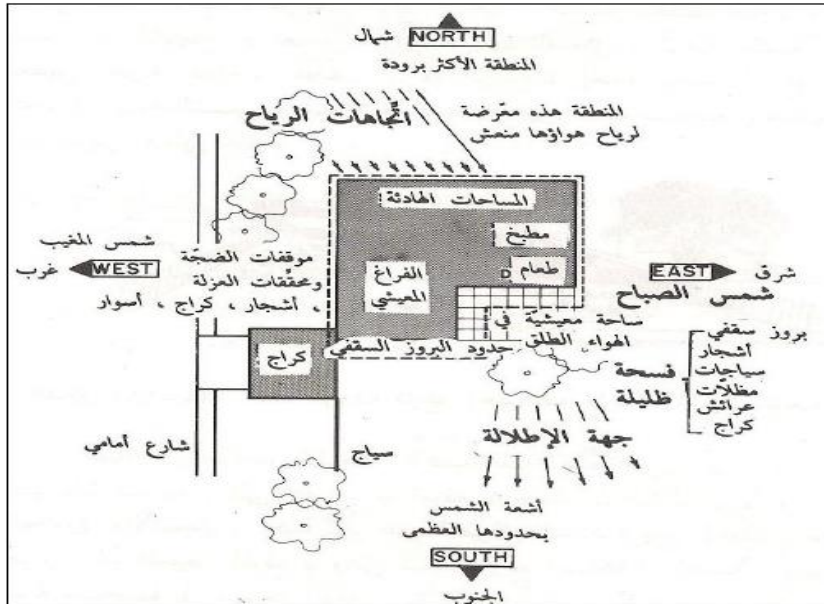 شمال
NORTH
المنطقة الأكثر برودة
المنطقة هذه معرضة
لرياح هواؤها منعش
اتجاهات الرياح
المساحات الهادئة
مطبخ
طعام
D
الفراغ
المعيشي
شمس المغيب
غرب
WEST
موقفات الضجّة
ومحققات العزلة
، أشجار ، كراج ، أسوار
EAST
شرق
شمس الصباح
ساحة معيشيّة في
الهواء الطلق
حدود البروز السقفي
كراج
بروز سقفي
أشجار
سياجات
مظلّات
عرائش
كراج
فسحة
ظليلة
جهة الإطلالة
شارع أمامي
سياج
أشعة الشمس
بحدودها العظمى
SOUTH
الجنوب